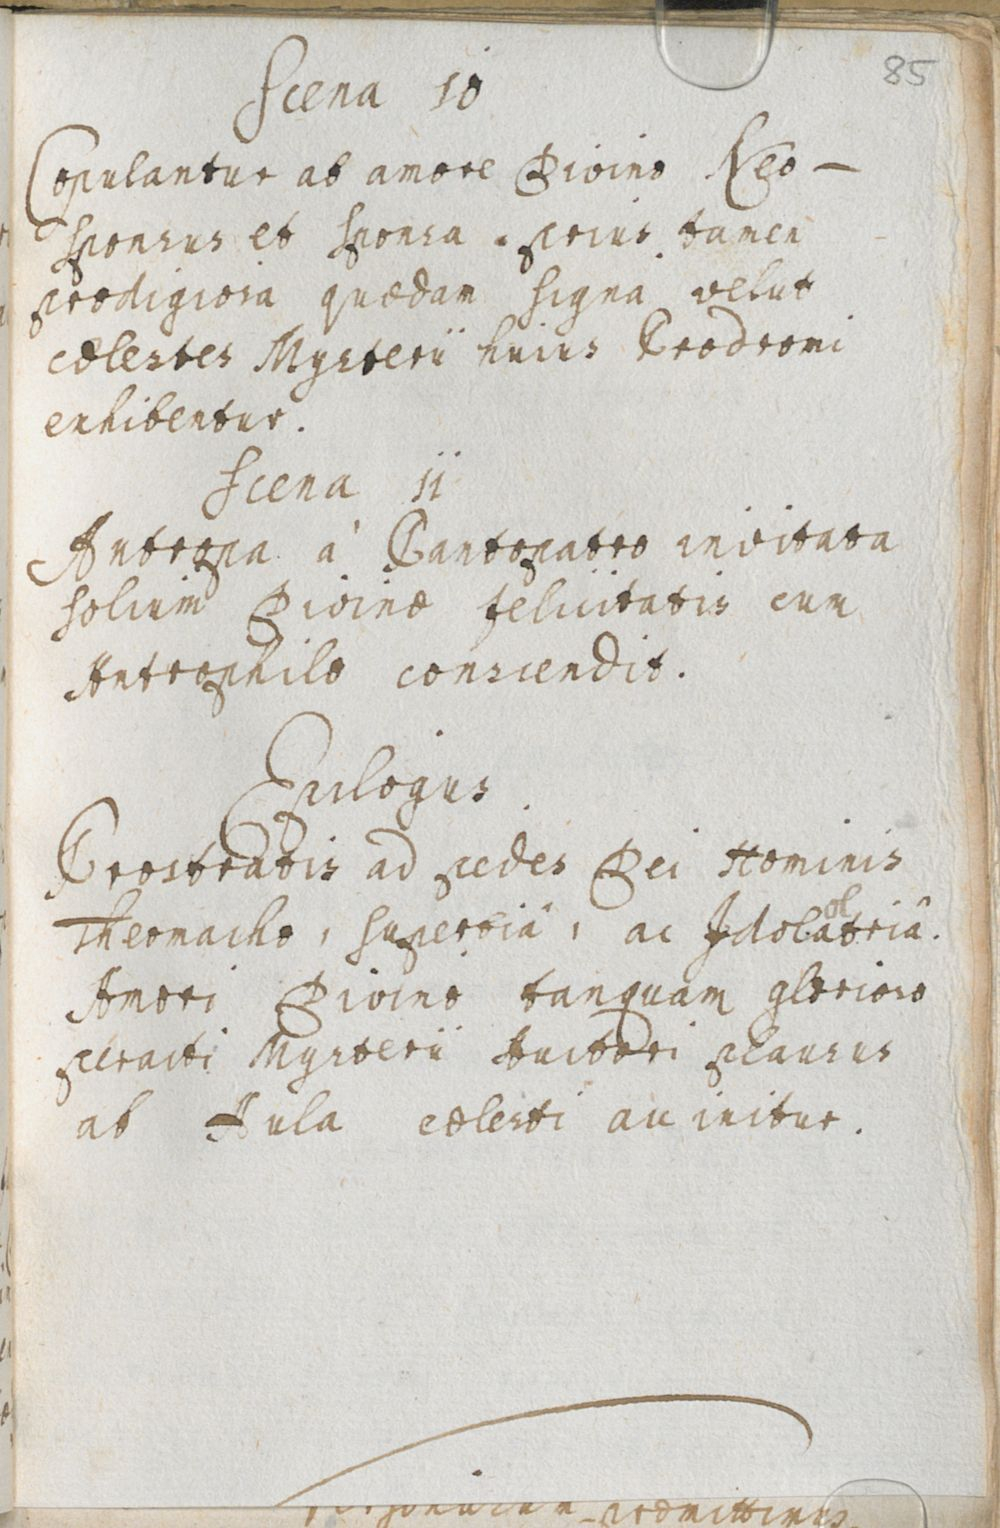 85
Scena 10
Copulantur ab amore Divino Neo-
sponsus et sponsa. prius tamen
prodigiosa quædam signa velut
cælestes Mysterii huius Prodromi
exhibentur.
Scena 11
Antropa à Pantopatro invitata
solium Divinæ feliciitatis cum
Antrophilo conscendit.
Epilogus
Prostratis ad pedes Dei Hominis
Theomacho, superbiâ, ac Idolatriâ.
ol
Amori Divino tanquam glorioso
peracti Mysterii Auctori plausus
ab Aula cælesti accinitur.
præmittimus